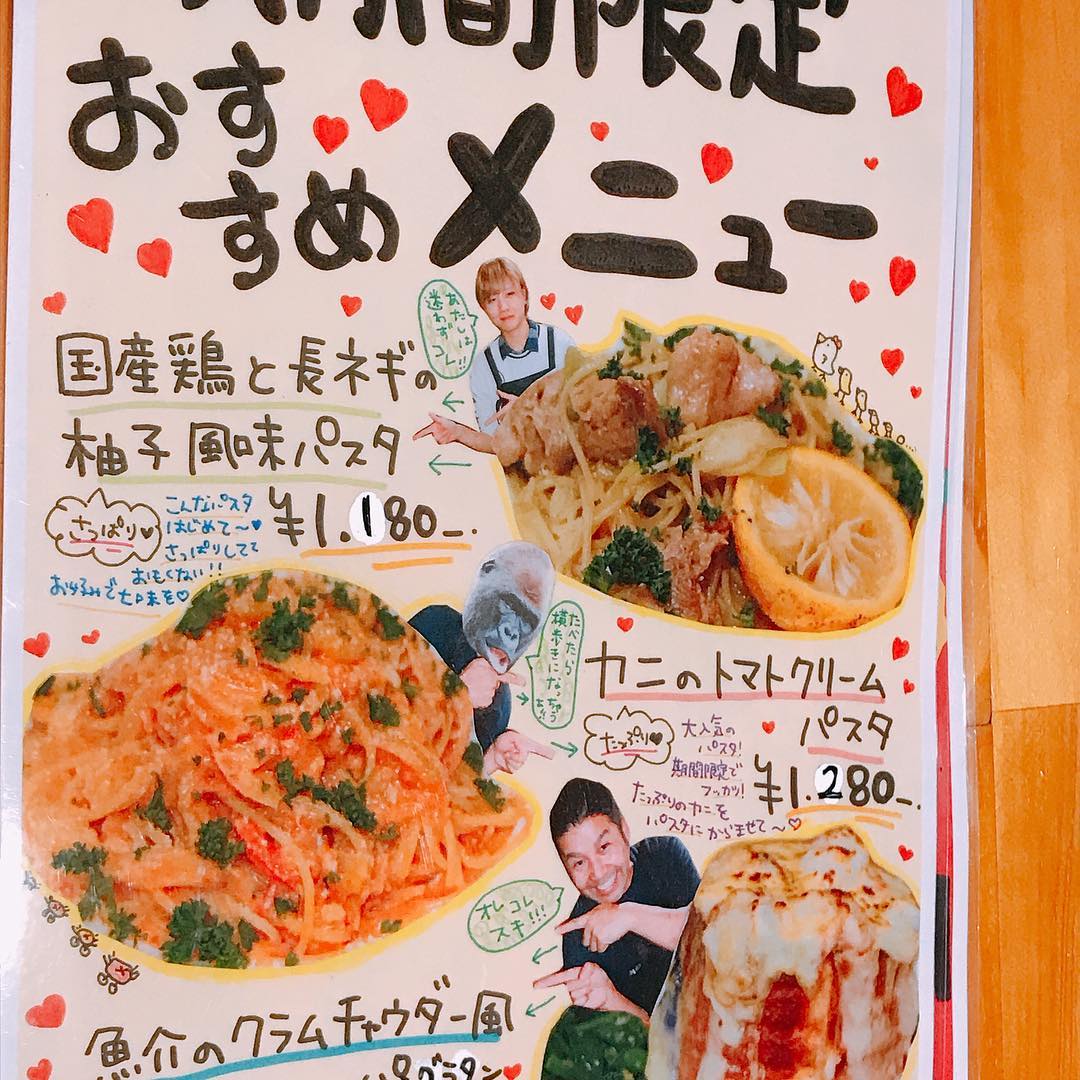 期間限定
おすすめ
メニュー
あたしは
迷わず
コレ!!
国産鶏と長ネギの
柚子風味パスタ
さっぱり♡
こんなパスタ
はじめて〜♡
さっぱりしてて
おもくない!!
お好みで七味を♡
¥1.180-.
たべたら
横歩きになっちゃう
カニのトマトクリーム
パスタ
たっぷり♡
大人気の
パスタ!
期間限定で
フッカツ!
たっぷりのカニを
パスタにからませて〜♡
¥1.280-.
オレコレ
スキ!!!
魚介のクラムチャウダー風
グラタン